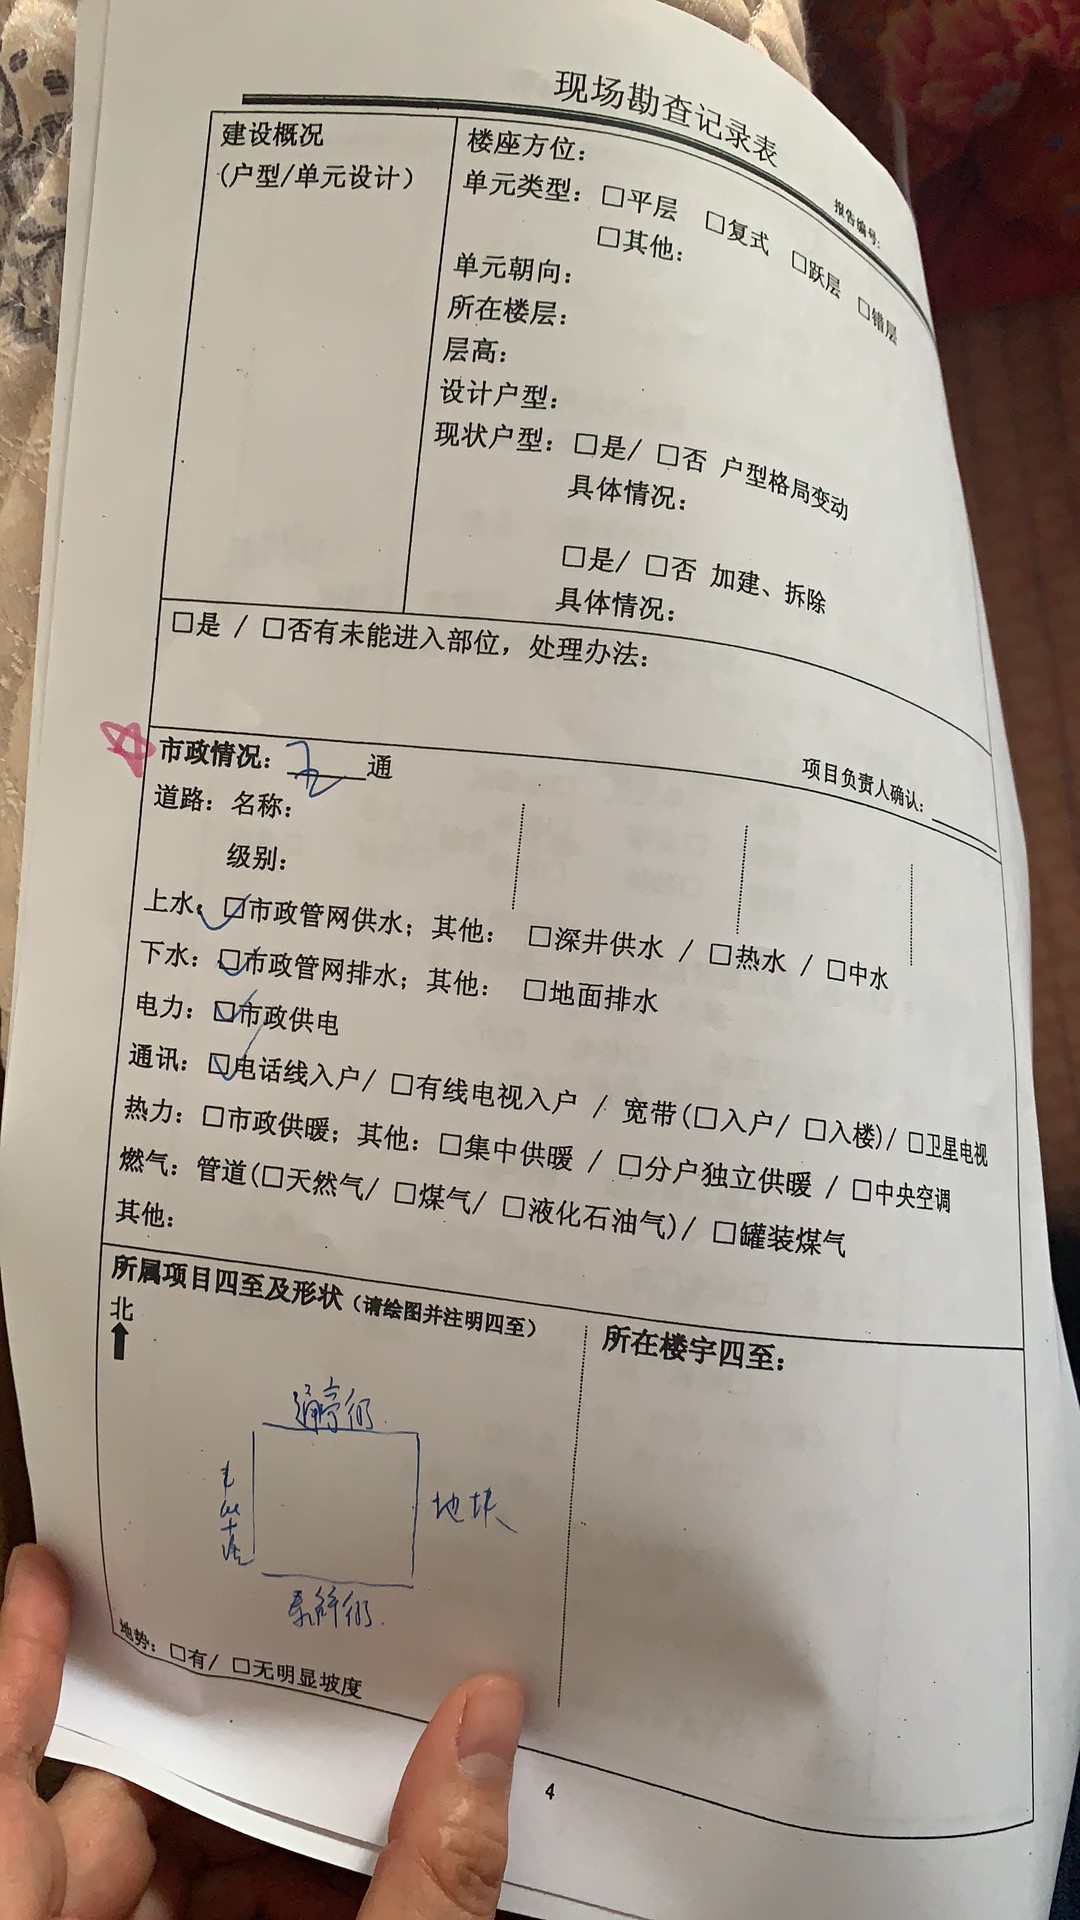 现场勘查记录表
报告编号:
建设概况
(户型/单元设计)
楼座方位:
单元类型: □平层 □复式 □跃层 □错层
□其他:
单元朝向:
所在楼层:
层高:
设计户型:
现状户型: □是/ □否 户型格局变动
具体情况:
□是/ □否 加建、拆除
具体情况:
□是 / □否有未能进入部位, 处理办法:
项目负责人确认:
市政情况: 五 通
道路: 名称:
级别:
上水: □市政管网供水; 其他: □深井供水 / □热水 / □中水
下水: □市政管网排水; 其他: □地面排水
电力: □市政供电
通讯: □电话线入户/ □有线电视入户 / 宽带(□入户/ □入楼)/ □卫星电视
热力: □市政供暖; 其他: □集中供暖 / □分户独立供暖 / □中央空调
燃气: 管道(□天然气/ □煤气/ □液化石油气)/ □罐装煤气
其他:
所属项目四至及形状(请绘图并注明四至)
北
通亭街
地块
地势: □有/ □无明显坡度
所在楼宇四至:
4